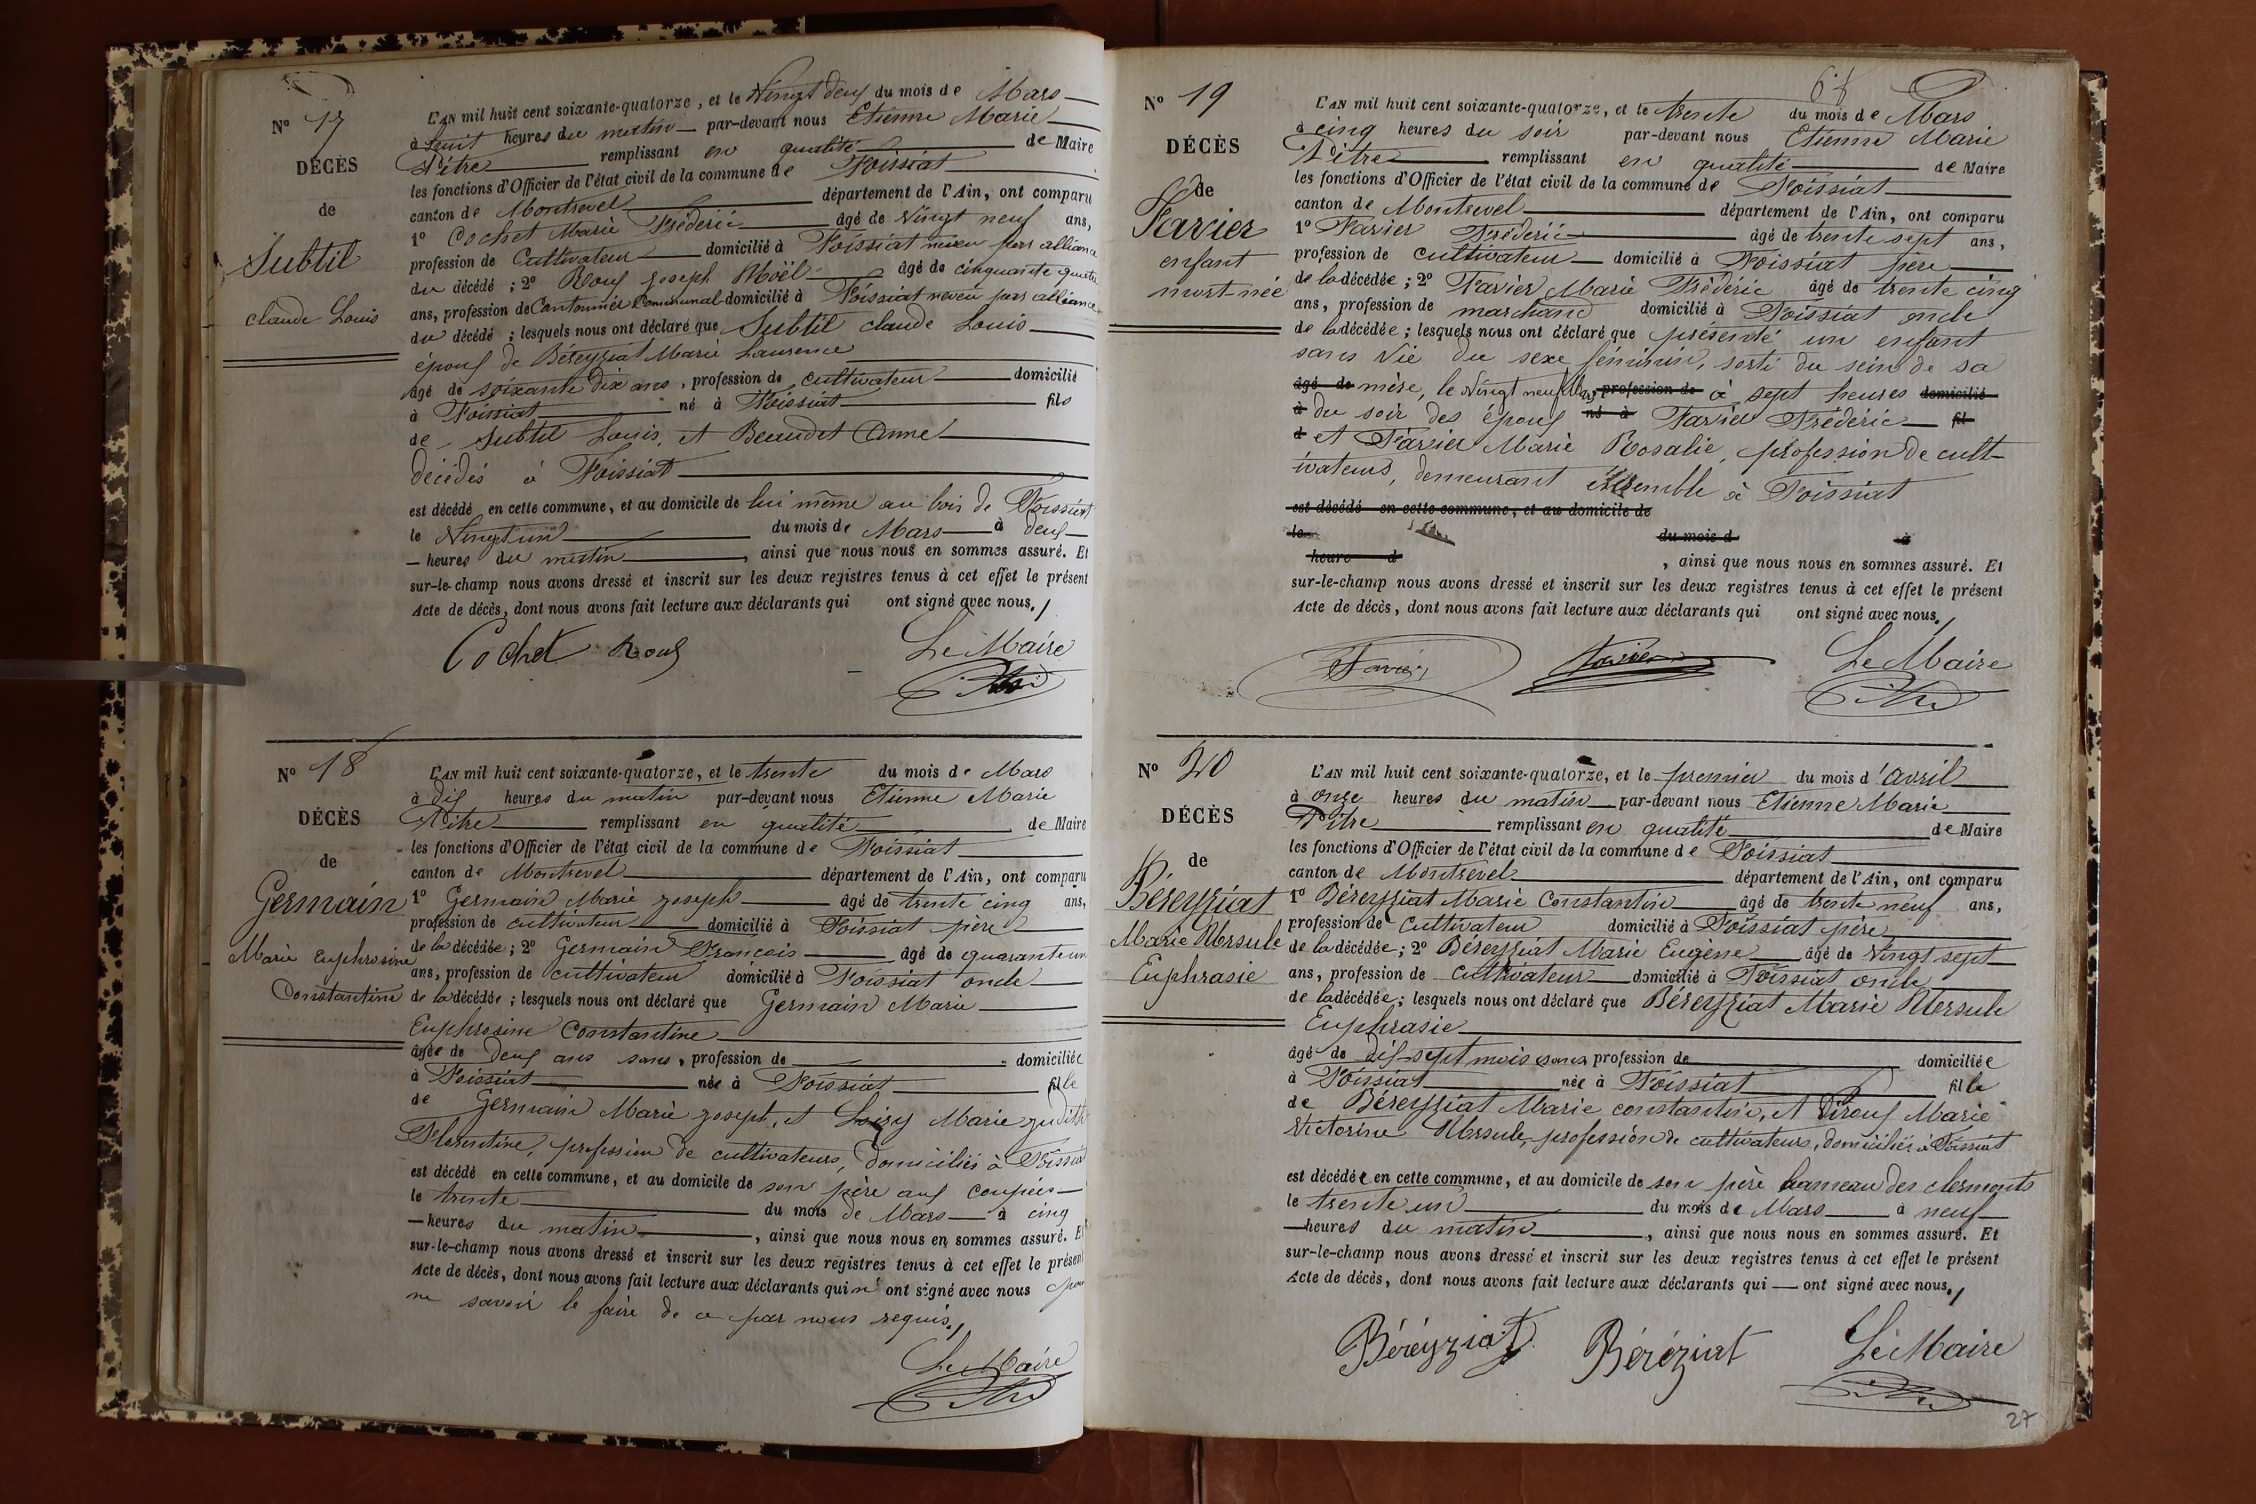 N° 17
DÉCÈS
de
Subtil
Claude Louis
L'AN mil huit cent soixante-quatorze, et le Vingt deux du mois de Mars
à huit heures du matin par-devant nous Etienne Marie
Pitre remplissant en qualité de Maire
les fonctions d'Officier de l'état civil de la commune de Foissiat
canton de Montrevel département de l'Ain, ont comparu
1° Cochet Marie Frédéric âgé de Vingt neuf ans,
profession de Cultivateur domicilié à Foissiat neveu par alliance
du décédé ; 2° Roux Joseph Noël âgé de cinquante quatre
ans, profession de Cantonnier Communal domicilié à Foissiat neveu par alliance
du décédé ; lesquels nous ont déclaré que Subtil Claude Louis
époux de Béreyziat Marie Laurence
âgé de soixante dix ans, profession de cultivateur domicilié
à Foissiat né à Foissiat fils
de Subtil Louis, et Beaudet Anne
décédés à Foissiat
est décédé en cette commune, et au domicile de lui même au bois de Foissiat
le Vingt un du mois de Mars à deux
heures du matin, ainsi que nous nous en sommes assuré. Et
sur-le-champ nous avons dressé et inscrit sur les deux registres tenus à cet effet le présent
Acte de décès, dont nous avons fait lecture aux déclarants qui ont signé avec nous./
Cochet Roux Le Maire
N° 18
DÉCÈS
de
Germain
Marie Euphrosine
Constantine
L'AN mil huit cent soixante-quatorze, et le trente du mois de Mars
à dix heures du matin par-devant nous Etienne Marie
Pitre remplissant en qualité de Maire
les fonctions d'Officier de l'état civil de la commune de Foissiat
canton de Montrevel département de l'Ain, ont comparu
1° Germain Marie Joseph âgé de trente cinq ans,
profession de cultivateur domicilié à Foissiat père
de la décédée ; 2° Germain François âgé de quarante un
ans, profession de cultivateur domicilié à Foissiat oncle
de la décédée ; lesquels nous ont déclaré que Germain Marie
Euphrosine Constantine
âgée de deux ans sans, profession de domiciliée
à Foissiat née à Foissiat fille
de Germain Marie Joseph, et Marie Judith
Florentine, profession de cultivateurs, domiciliés à Foissiat
est décédé en cette commune, et au domicile de son père aux Coupées
le trente du mois de Mars à cinq
heures du matin, ainsi que nous nous en sommes assuré. Et
sur-le-champ nous avons dressé et inscrit sur les deux registres tenus à cet effet le présent
Acte de décès, dont nous avons fait lecture aux déclarants qui n' ont signé avec nous pour
ne savoir le faire de ce par nous requis./
Le Maire
N° 19
DÉCÈS
de
Favier
enfant
mort-née
L'AN mil huit cent soixante-quatorze, et le trente du mois de Mars
à cinq heures du soir par-devant nous Etienne Marie
Pitre remplissant en qualité de Maire
les fonctions d'Officier de l'état civil de la commune de Foissiat
canton de Montrevel département de l'Ain, ont comparu
1° Favier Frédéric âgé de trente sept ans,
profession de cultivateur domicilié à Foissiat père
de la décédée ; 2° Favier Marie Frédéric âgé de trente cinq
ans, profession de marchand domicilié à Foissiat oncle
de la décédée ; lesquels nous ont déclaré que présenté un enfant
sans Vie du sexe féminin, sorti du sein de sa
âgé de mère, le Vingt neuf profession de à sept heures domicilié
à du soir des époux né à Favier Frédéric fil
d et Favier Marie Rosalie, profession de cult-
ivateurs, demeurant ensemble à Foissiat
est décédé en cette commune, et au domicile de
le du mois d à
heure d , ainsi que nous nous en sommes assuré. Et
sur-le-champ nous avons dressé et inscrit sur les deux registres tenus à cet effet le présent
Acte de décès, dont nous avons fait lecture aux déclarants qui ont signé avec nous./
Favier Favier Le Maire
N° 20
DÉCÈS
de
Béreyziat
Marie Ursule
Euphrasie
L'AN mil huit cent soixante-quatorze, et le premier du mois d'avril
à onze heures du matin par-devant nous Etienne Marie
Pitre remplissant en qualité de Maire
les fonctions d'Officier de l'état civil de la commune de Foissiat
canton de Montrevel département de l'Ain, ont comparu
1° Béreyziat Marie Constantin âgé de trente neuf ans,
profession de Cultivateur domicilié à Foissiat père
de la décédée ; 2° Béreyziat Marie Eugène âgé de Vingt sept
ans, profession de cultivateur domicilié à Foissiat oncle
de la décédée ; lesquels nous ont déclaré que Béreyziat Marie Ursule
Euphrasie
âgé de dix-sept mois sans profession de domiciliée
à Foissiat née à Foissiat fille
de Béreyziat Marie Constantin, et Piroux Marie
Victorine Ursule, profession de cultivateurs, domiciliés à Foissiat
est décédée en cette commune, et au domicile de son père hameau des clermonts
le trente un du mois de Mars à neuf
heures du matin, ainsi que nous nous en sommes assuré. Et
sur-le-champ nous avons dressé et inscrit sur les deux registres tenus à cet effet le présent
Acte de décès, dont nous avons fait lecture aux déclarants qui ont signé avec nous./
Béréyziat Béréziat Le Maire
27